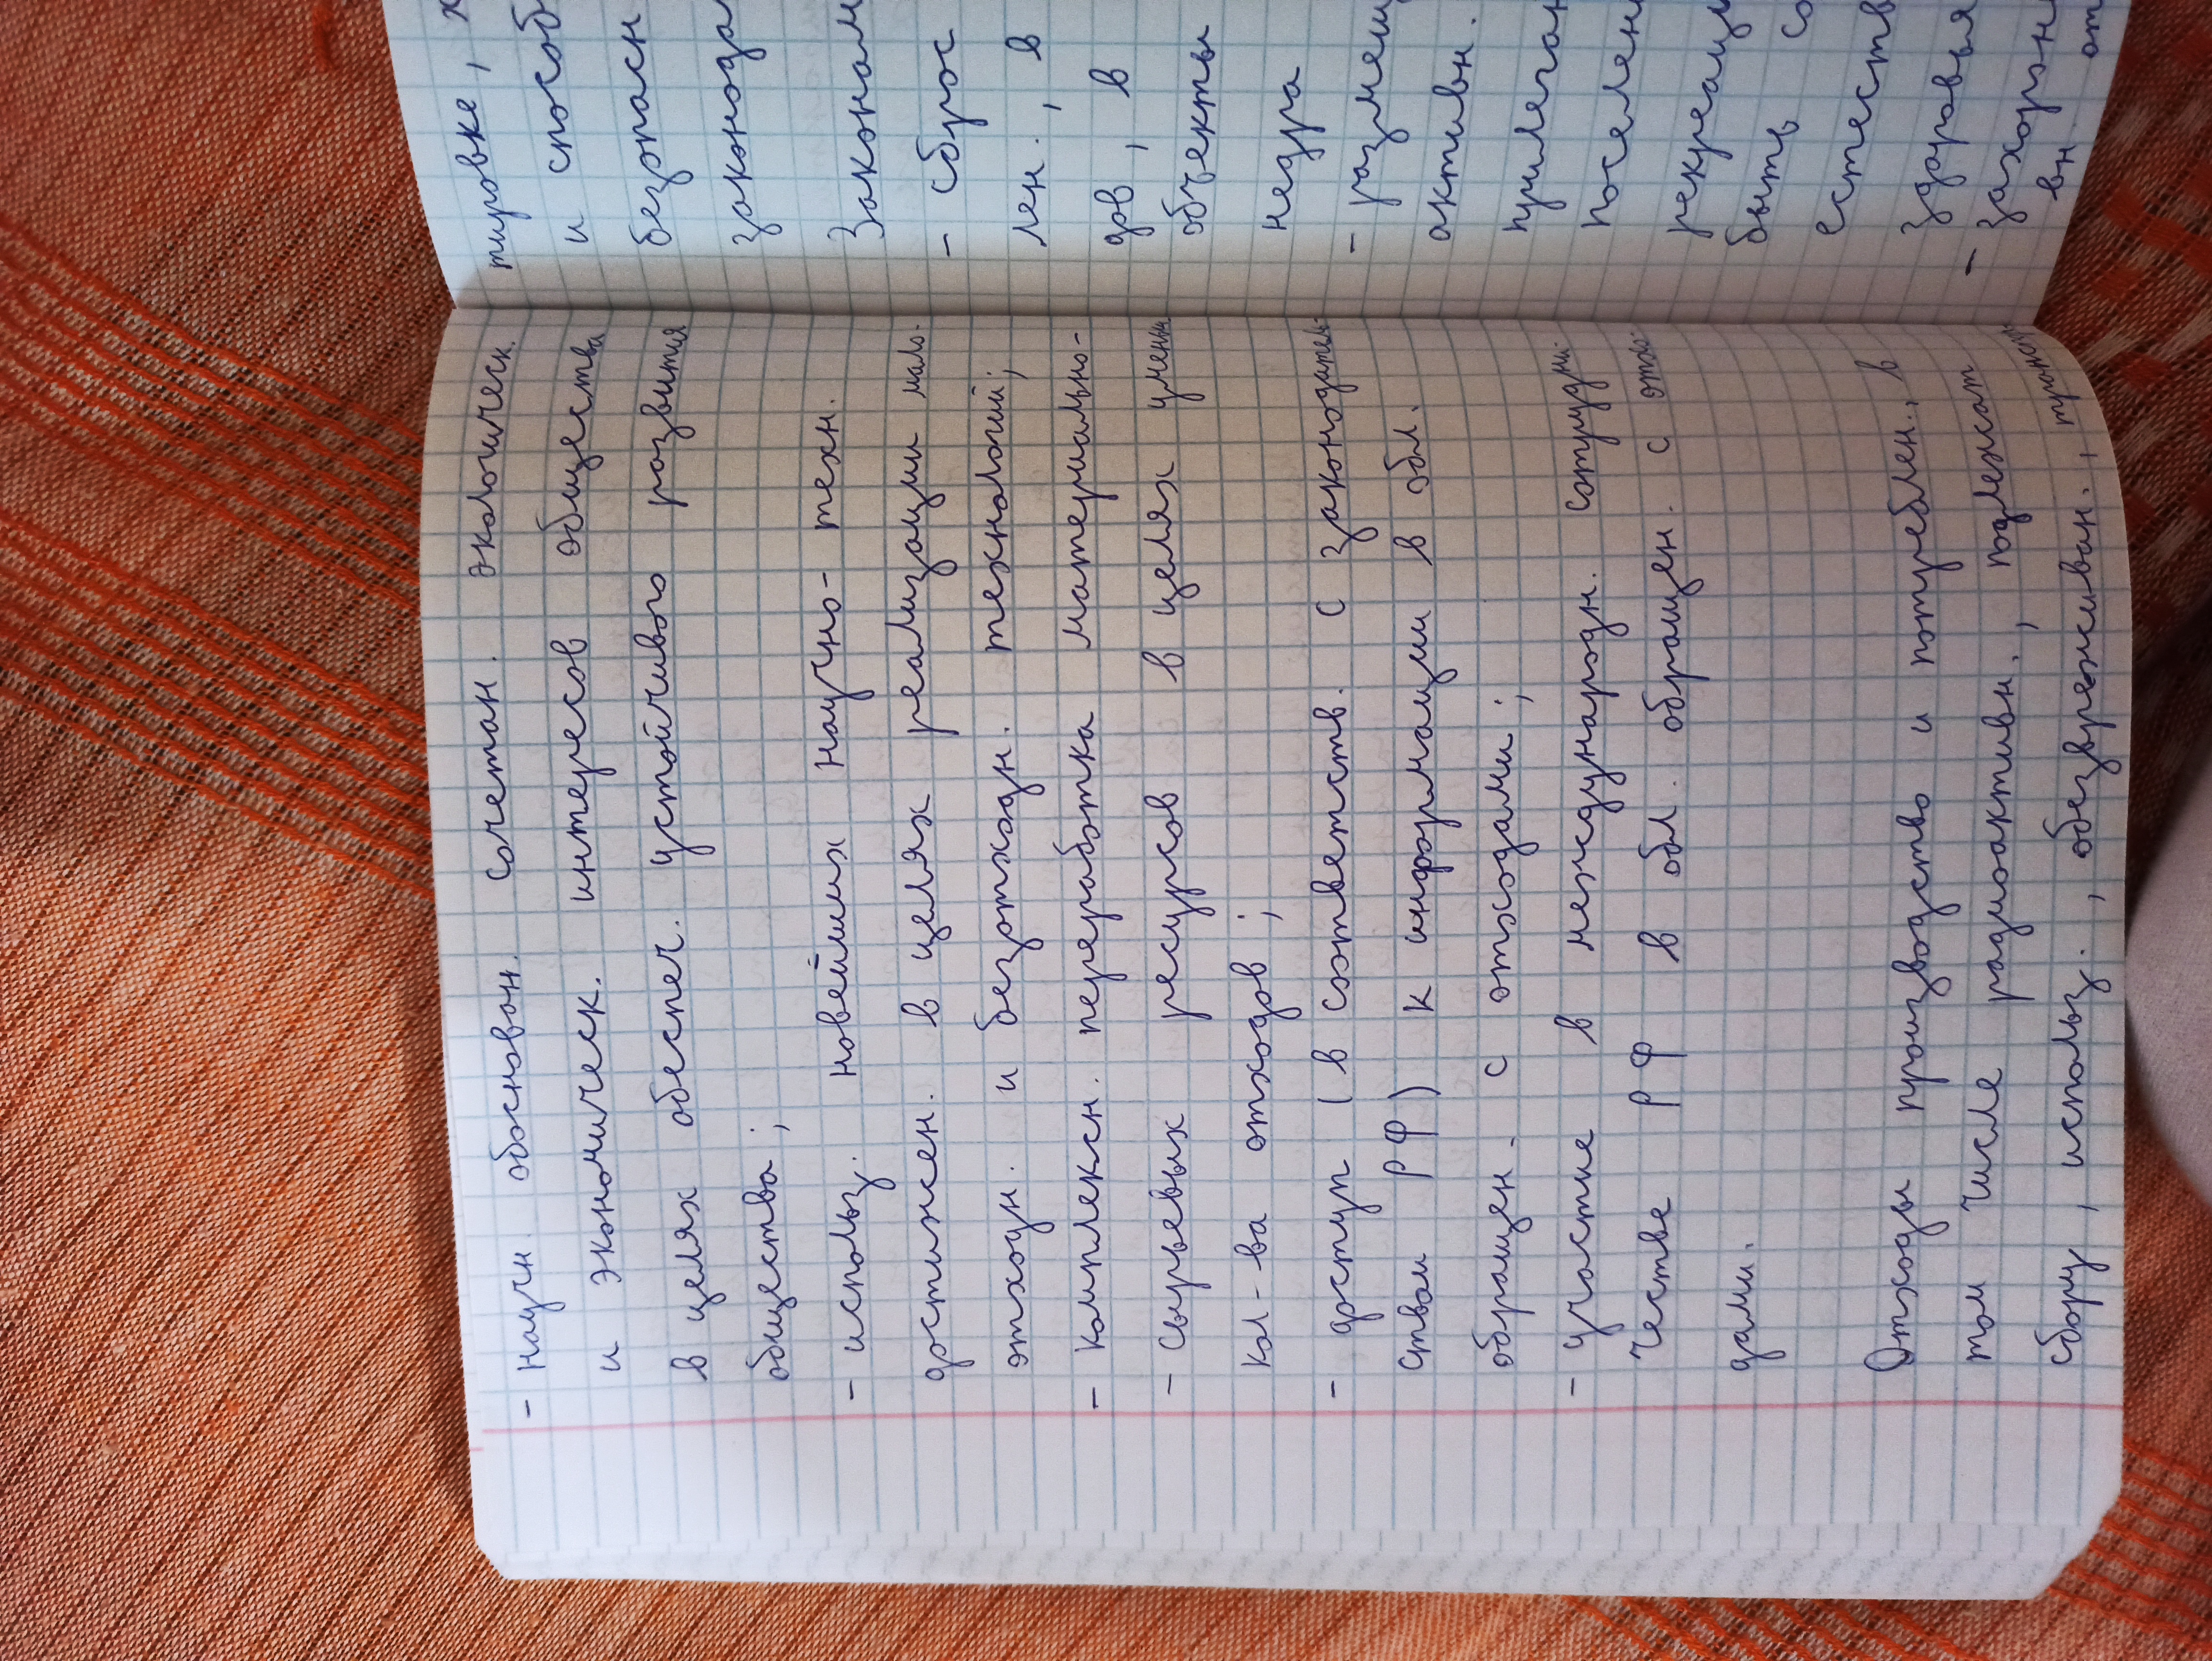 - научн. обоснован. сочетан. экологическ.
и экономическ. интересов общества
в целях обеспеч. устойчивого развития
общества;
- использ. новейших научно-техн.
достижен. в целях реализации мало-
отходн. и безотходн. технологий;
- комплексн. переработка материально-
- сырьевых ресурсов в целях уменьш.
кол-ва отходов;
- доступ (в соответств. с законодатель-
ством РФ) к информации в обл.
обращен. с отходами;
- участие в международн. сотрудни-
честве РФ в обл. обращен. с отхо-
дами.
Отходы производство и потреблен., в
том числе радиоактивн., подлежат
сбору, использ., обезвреживан.,
тировке, х
и способ
безопасн
законода
Законам
- сброс
лен., в
дов, в
объекты
недра
- размещ
активн.
прилеган
поселен
рекреаци
быть со
естеств
здоровья
- захорон
вн. от